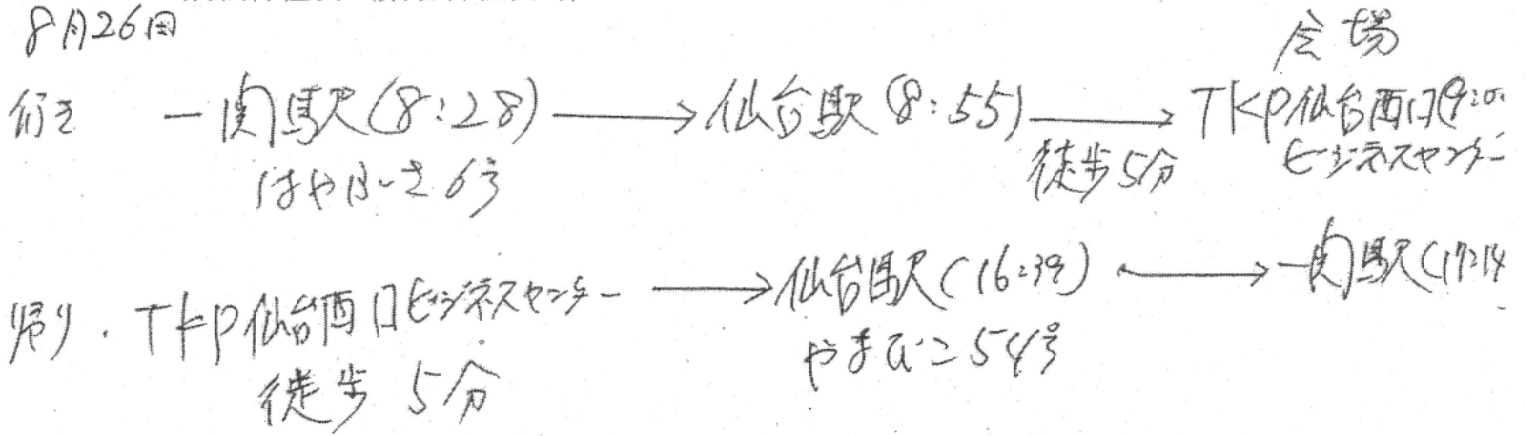 8月26日
会場
行き 一関駅(8:28) → 仙台駅(8:55) → TKP仙台西口(9:00
はやぶさ6号 徒歩5分 ビジネスセンター
帰り. TKP仙台西口ビジネスセンター → 仙台駅(16:39) → 一関駅(17:14
徒歩 5分 やまびこ54号